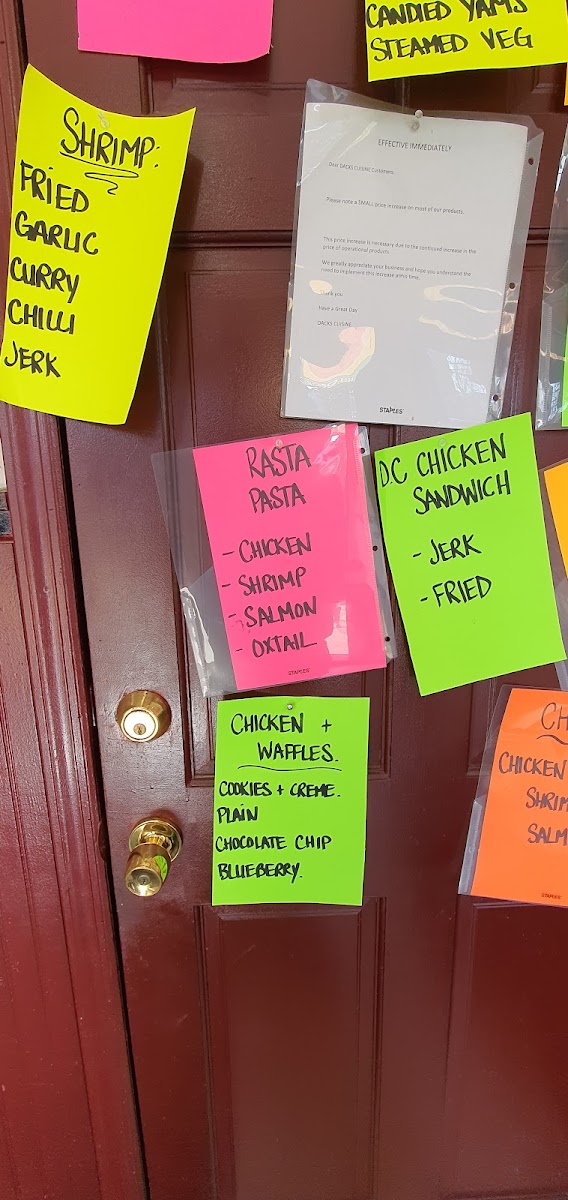 CANDIED YAMS
STEAMED VEG
SHRIMP:
FRIED
GARLIC
CURRY
CHILLI
JERK
EFFECTIVE IMMEDIATELY
Dear DACKS CUISINE Customers,
Please note a SMALL price increase on most of our products.
This price increase is necessary due to the continued increase in the
price of operational products.
We greatly appreciate your business and hope you understand the
need to implement this increase at this time.
you
Have a Great Day
DACKS CUISINE
STAPLES
RASTA
PASTA
- CHICKEN
- SHRIMP
- SALMON
- OXTAIL
STAPLES
D.C CHICKEN
SANDWICH
- JERK
- FRIED
CHICKEN +
WAFFLES.
COOKIES + CREME.
PLAIN
CHOCOLATE CHIP
BLUEBERRY.
CH
CHICKEN
SHRIM
SALM
STAPLES